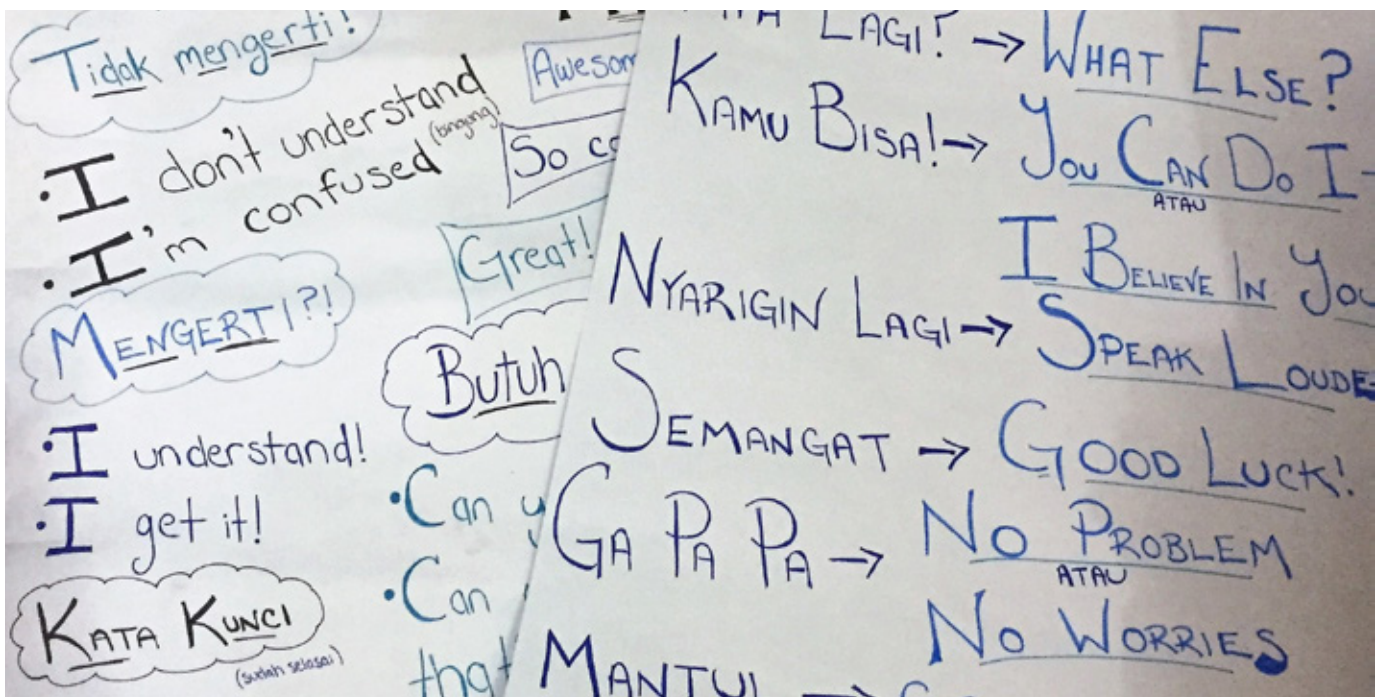 Tidak mengerti!
• I don't understand
• I'm confused (bingung)
MENGERTI?!
• I understand!
• I get it!
KATA KUNCI
(sudah selasai)
So
Great!
Butuh
• Can
• Can
that
LAGI? → WHAT ELSE?
KAMU BISA! → YOU CAN DO
ATAU
I BELIEVE IN YOU
NYARIGIN LAGI → SPEAK
SEMANGAT → GOOD LUCK!
GA PA PA → NO PROBLEM
ATAU
NO WORRIES
MANTUL →